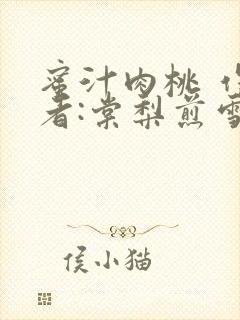 蜜汁肉桃
者:棠梨煎雪
侯小猫